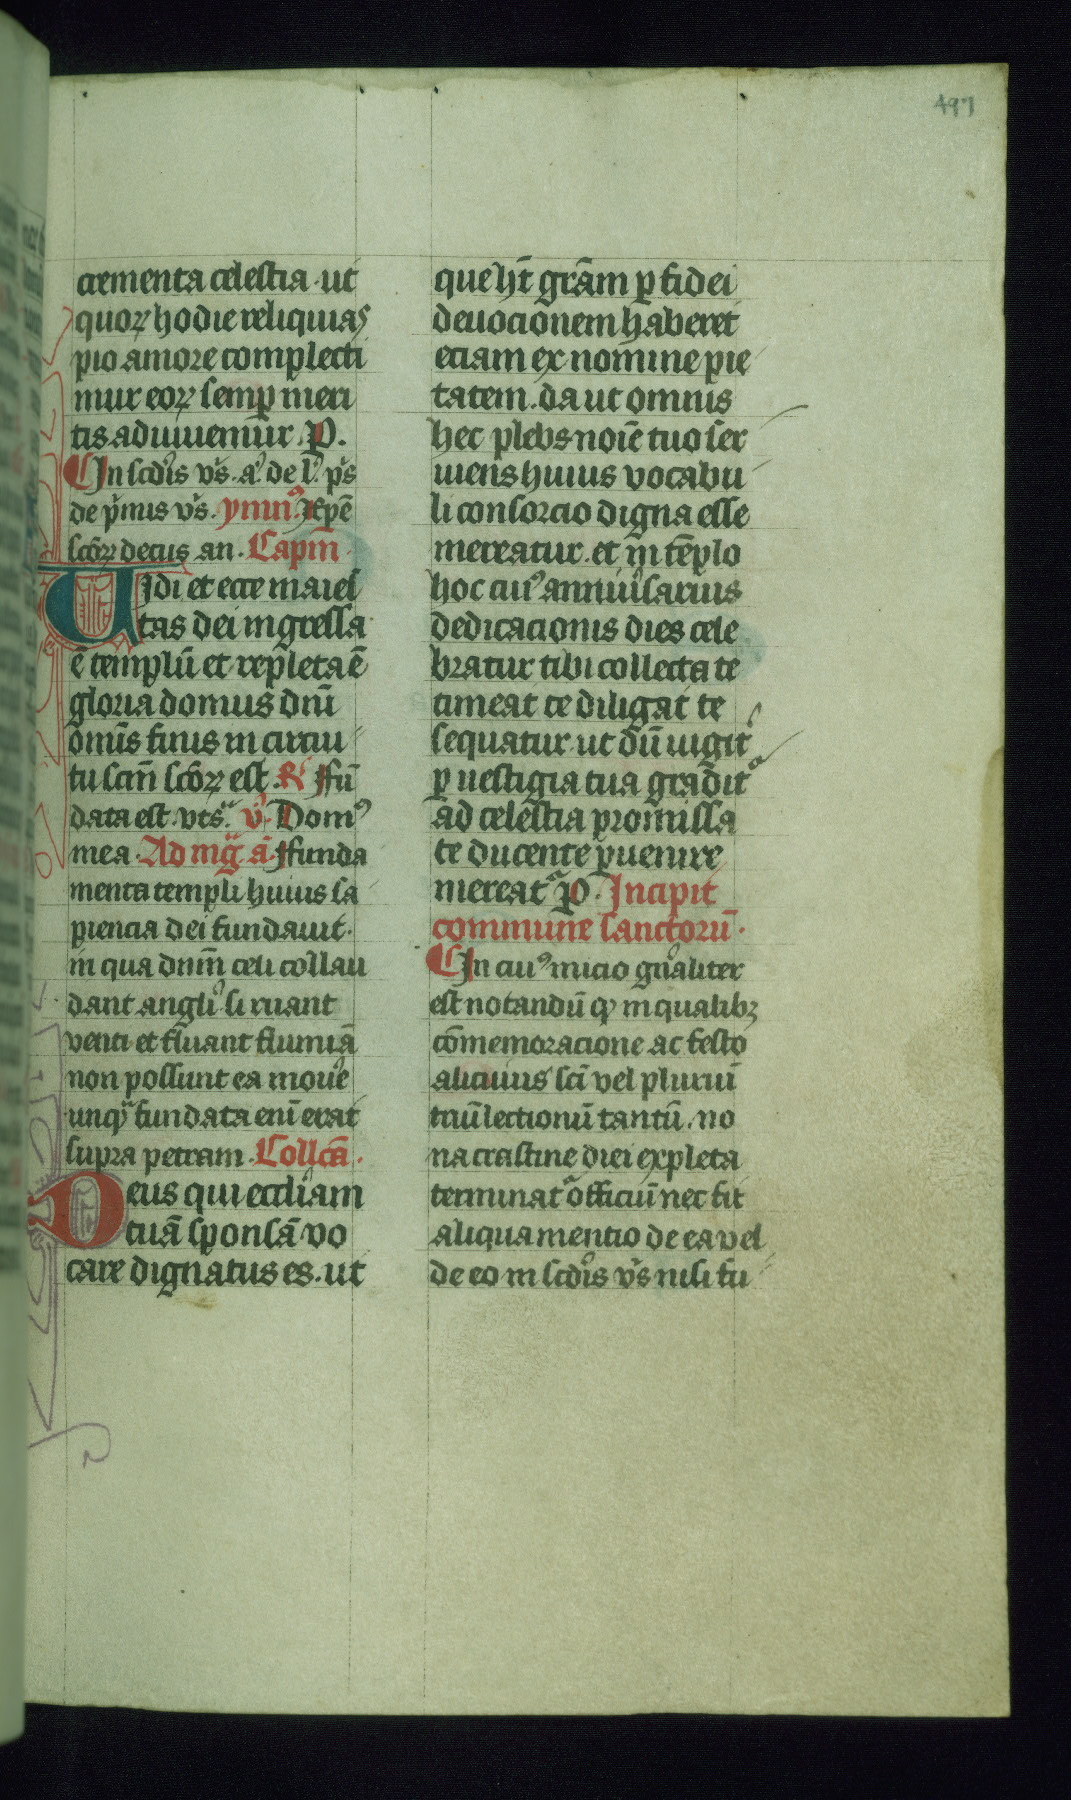 497
crementa celestia· ut
quoꝝ hodie reliquias
pio amore complecti
mur eoꝝ semꝑ meri
tis adiuuemur. P.
In scd̓is vs̓. a͛. de l̓. ps̓
de p̓mis vs̓. ymn᷒. Xpē
scōꝝ decus an. Capm̄·
Uidi et ecce maies
tas dei ingressa
ē templū et repleta ē
gloria domus dnī
om̄s finis in circui
tu scm̄ scōꝝ est. R̓ Ffū
data est. vts͛. v̓. Domꝰ
mea. Ad mg͛. ā. Ffunda
menta templi huius sa
piencia dei fundauit·
in qua dnm̄ celi collau
dant angli̓ si ruant
venti et fluant flumīa
non possunt ea mou̓e
unqᷓ fundata enī erat
supra petram. Collcā.
Deus qui eccliam
tuā sponsā vo
care dignatus es. ut
que hт̄ grām ꝑ fidei
deuocionem haberet
eciam ex nomine pie
tatem. da ut omnis
hec plebs noīe tuo ser
uiens huius vocabu
li consorcio digna esse
mereatur. et in tēplo
hoc cuiꝰ anniu̓sarius
dedicacionis dies cele
bratur tibi collecta te
timeat te diligat te
sequatur. ut dū iugit͛
ꝑ uestigia tua gradit͛
ad celestia promissa
te ducente ꝑuenire
mereat͛. P. Incipit
commune sanctorū·
In cuiꝰ inicio gn̓aliter
est notandū ꝙ in qualibꝫ
cōmemoracione ac festo
alicuius scī vel pluriū
triū lectionū tantū. no
na crastine diei expleta
terminat͛ officiū nec fit
aliqua mentio de ea vel
de eo in scd̓is vs̓ nisi fu